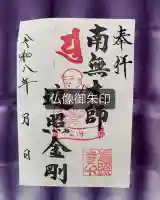 奉拝
南無大師
遍照金剛
令和八年 月 日
仏像御朱印